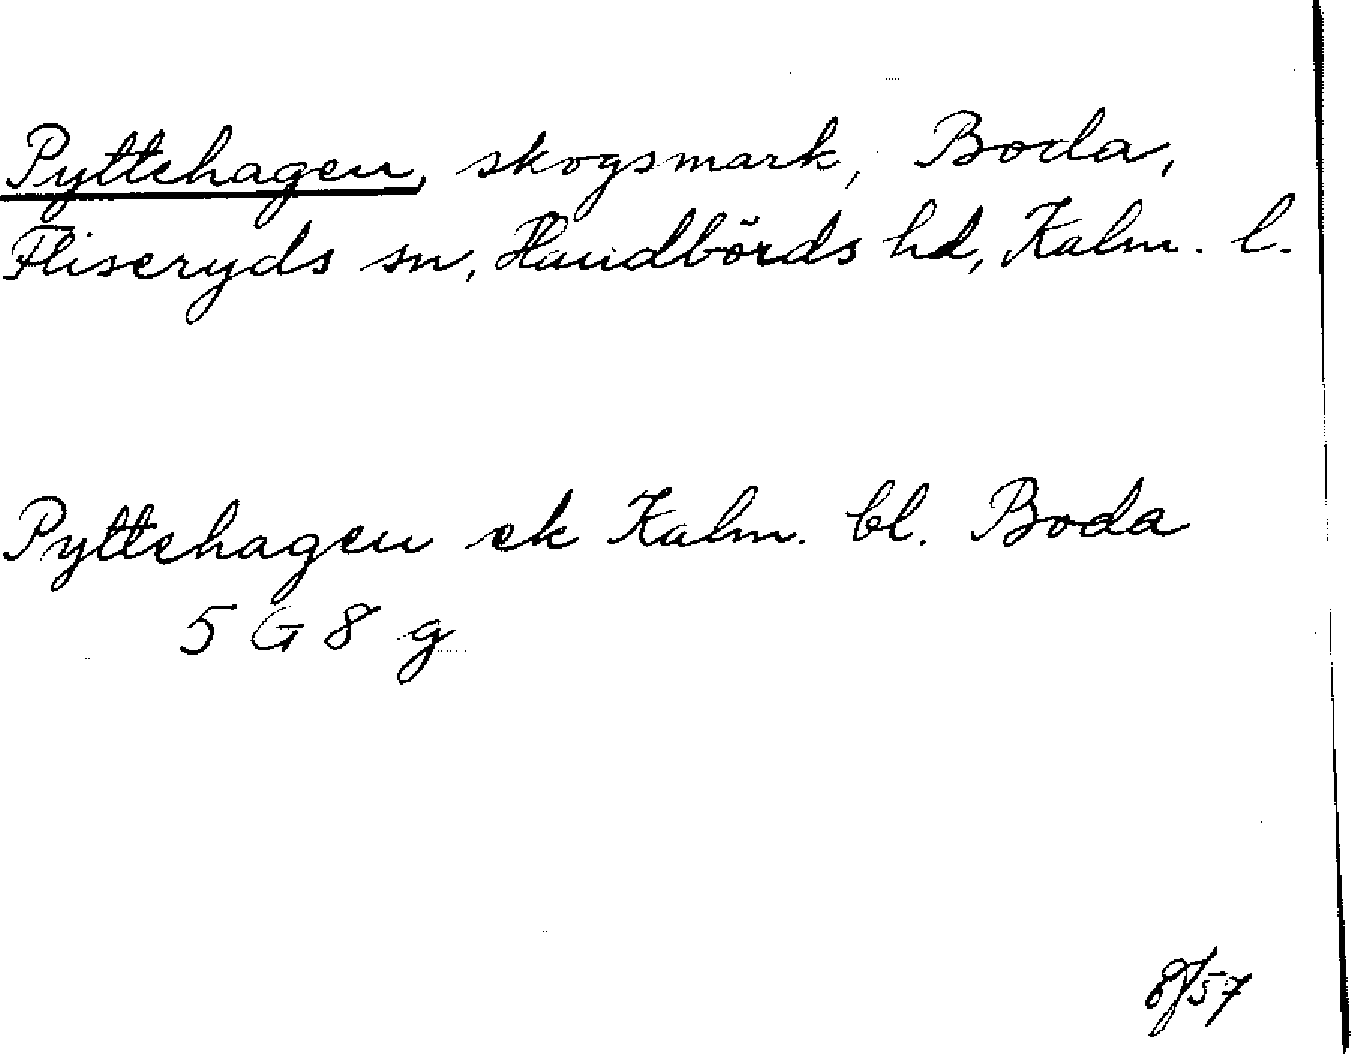 Pyttehagen, skogsmark, Boda,
Fliseryds sn, Handbörds hd, Kalm. l.
Pyttehagen ek Kalm. bl. Boda
5 G 8 g
8/57